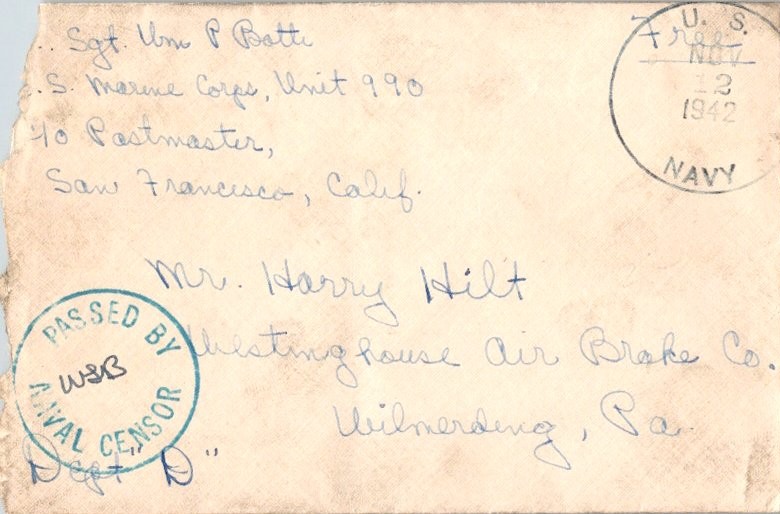 Sgt. Wm P Botti
.S. Marine Corps, Unit 990
c/o Postmaster,
San Francisco, Calif.
Free
U. S.
NOV
12
1942
NAVY
Mr. Harry Hilt
Westinghouse Air Brake Co.
Wilmerding, Pa
PASSED BY
WSB
NAVAL CENSOR
Dept "D"